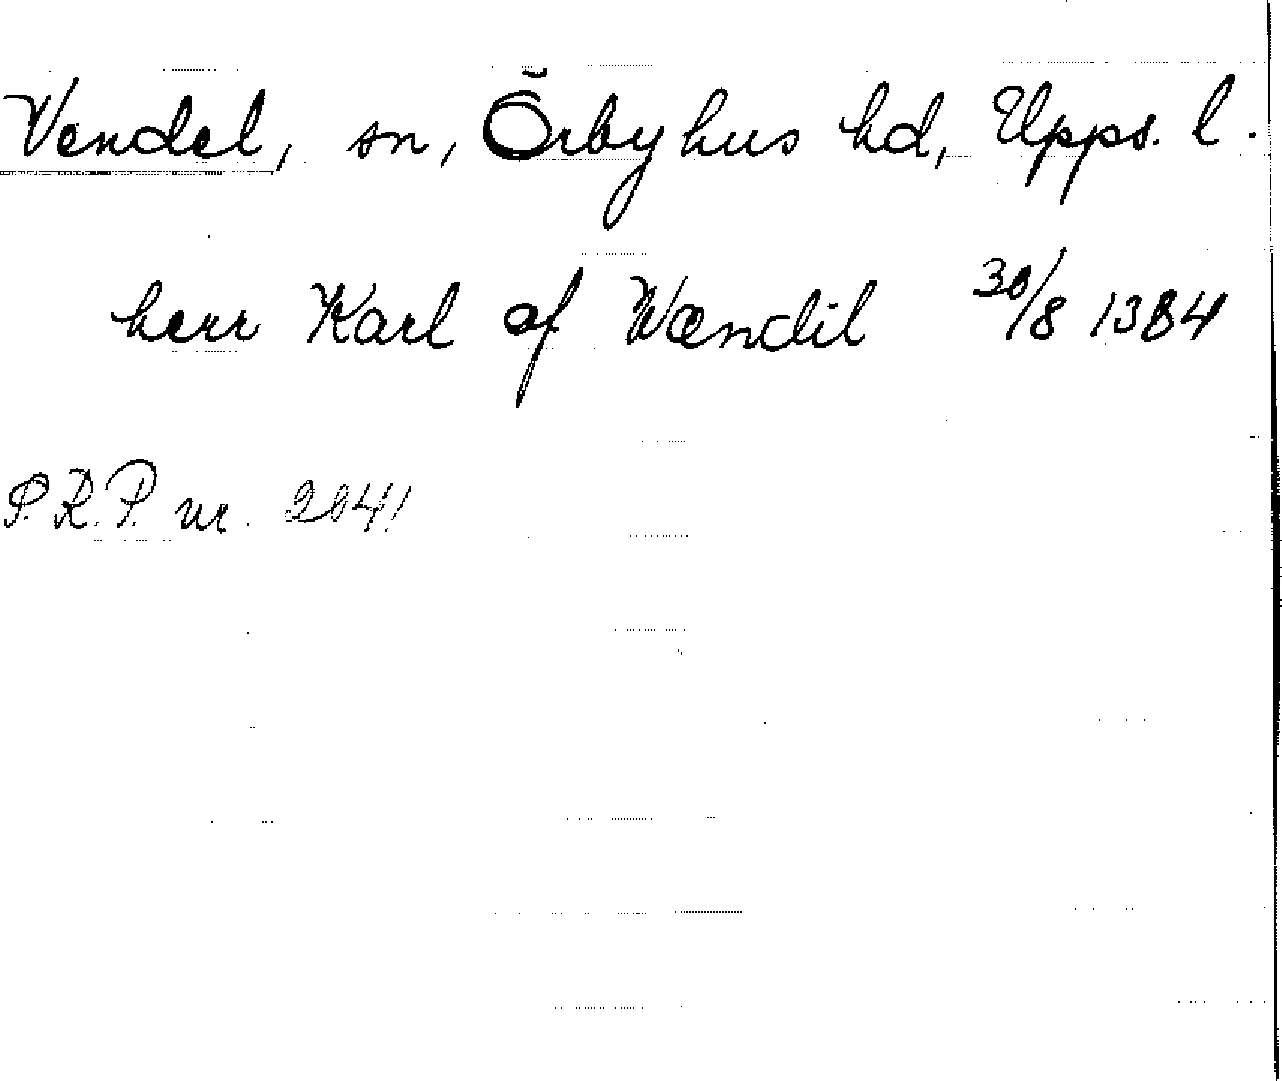 Vendel, sn, Örbyhus hd, Upps. l.
herr Karl af Wændil 30/8 1384
S.R.P. nr. 2041